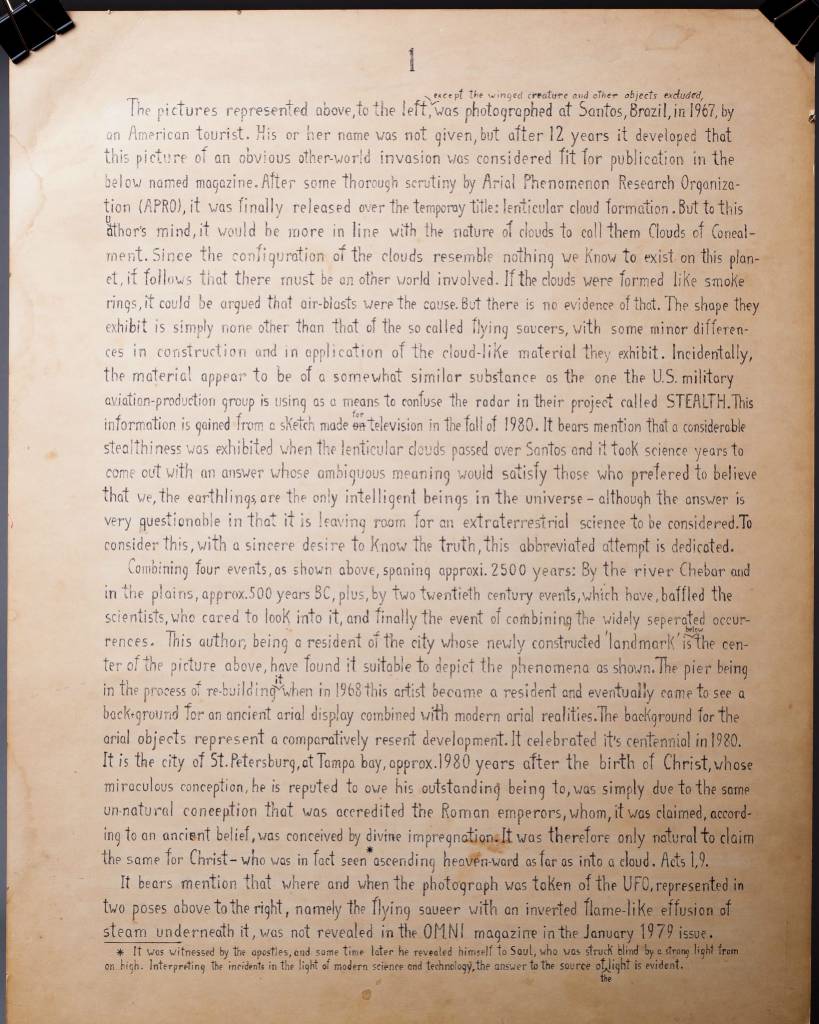 1
except the winged creature and other objects excluded,
The pictures represented above, to the left, was photographed at Santos, Brazil, in 1967, by
an American tourist. His or her name was not given, but after 12 years it developed that
this picture of an obvious other-world invasion was considered fit for publication in the
below named magazine. After some thorough scrutiny by Arial Phenomenon Research Organiza-
tion (APRO), it was finally released over the temporay title: lenticular cloud formation. But to this
u
athor's mind, it would be more in line with the nature of clouds to call them Clouds of Conceal-
ment. Since the configuration of the clouds resemble nothing we know to exist on this plan-
et, it follows that there must be an other world involved. If the clouds were formed like smoke
rings, it could be argued that air-blasts were the cause. But there is no evidence of that. The shape they
exhibit is simply none other than that of the so called flying saucers, with some minor differen-
ces in construction and in application of the cloud-like material they exhibit. Incidentally,
the material appear to be of a somewhat similar substance as the one the U.S. military
aviation-production group is using as a means to confuse the radar in their project called STEALTH. This
for
information is gained from a sketch made on television in the fall of 1980. It bears mention that a considerable
stealthiness was exhibited when the lenticular clouds passed over Santos and it took science years to
come out with an answer whose ambiguous meaning would satisfy those who prefered to believe
that we, the earthlings, are the only intelligent beings in the universe – although the answer is
very questionable in that it is leaving room for an extraterrestrial science to be considered. To
consider this, with a sincere desire to know the truth, this abbreviated attempt is dedicated.
Combining four events, as shown above, spaning approxi. 2500 years: By the river Chebar and
in the plains, approx. 500 years BC, plus, by two twentieth century events, which have, baffled the
scientists, who cared to look into it, and finally the event of combining the widely seperated occur-
below
rences. This author, being a resident of the city whose newly constructed 'landmark' is the cen-
ter of the picture above, have found it suitable to depict the phenomena as shown. The pier being
it
in the process of re-building when in 1968 this artist became a resident and eventually came to see a
back-ground for an ancient arial display combined with modern arial realities. The background for the
arial objects represent a comparatively resent development. It celebrated it's centennial in 1980.
It is the city of St. Petersburg, at Tampa bay, approx. 1980 years after the birth of Christ, whose
miraculous conception, he is reputed to owe his outstanding being to, was simply due to the same
un-natural conception that was accredited the Roman emperors, whom, it was claimed, accord-
ing to an ancient belief, was conceived by divine impregnation. It was therefore only natural to claim
the same for Christ – who was in fact seen *ascending heaven-ward as far as into a cloud. Acts 1,9.
It bears mention that where and when the photograph was taken of the UFO, represented in
two poses above to the right, namely the flying saueer with an inverted flame-like effusion of
steam underneath it, was not revealed in the OMNI magazine in the January 1979 issue.
* It was witnessed by the apostles, and some time later he revealed himself to Saul, who was struck blind by a strong light from
on high. Interpreting the incidents in the light of modern science and technology, the answer to the source of light is evident.
the